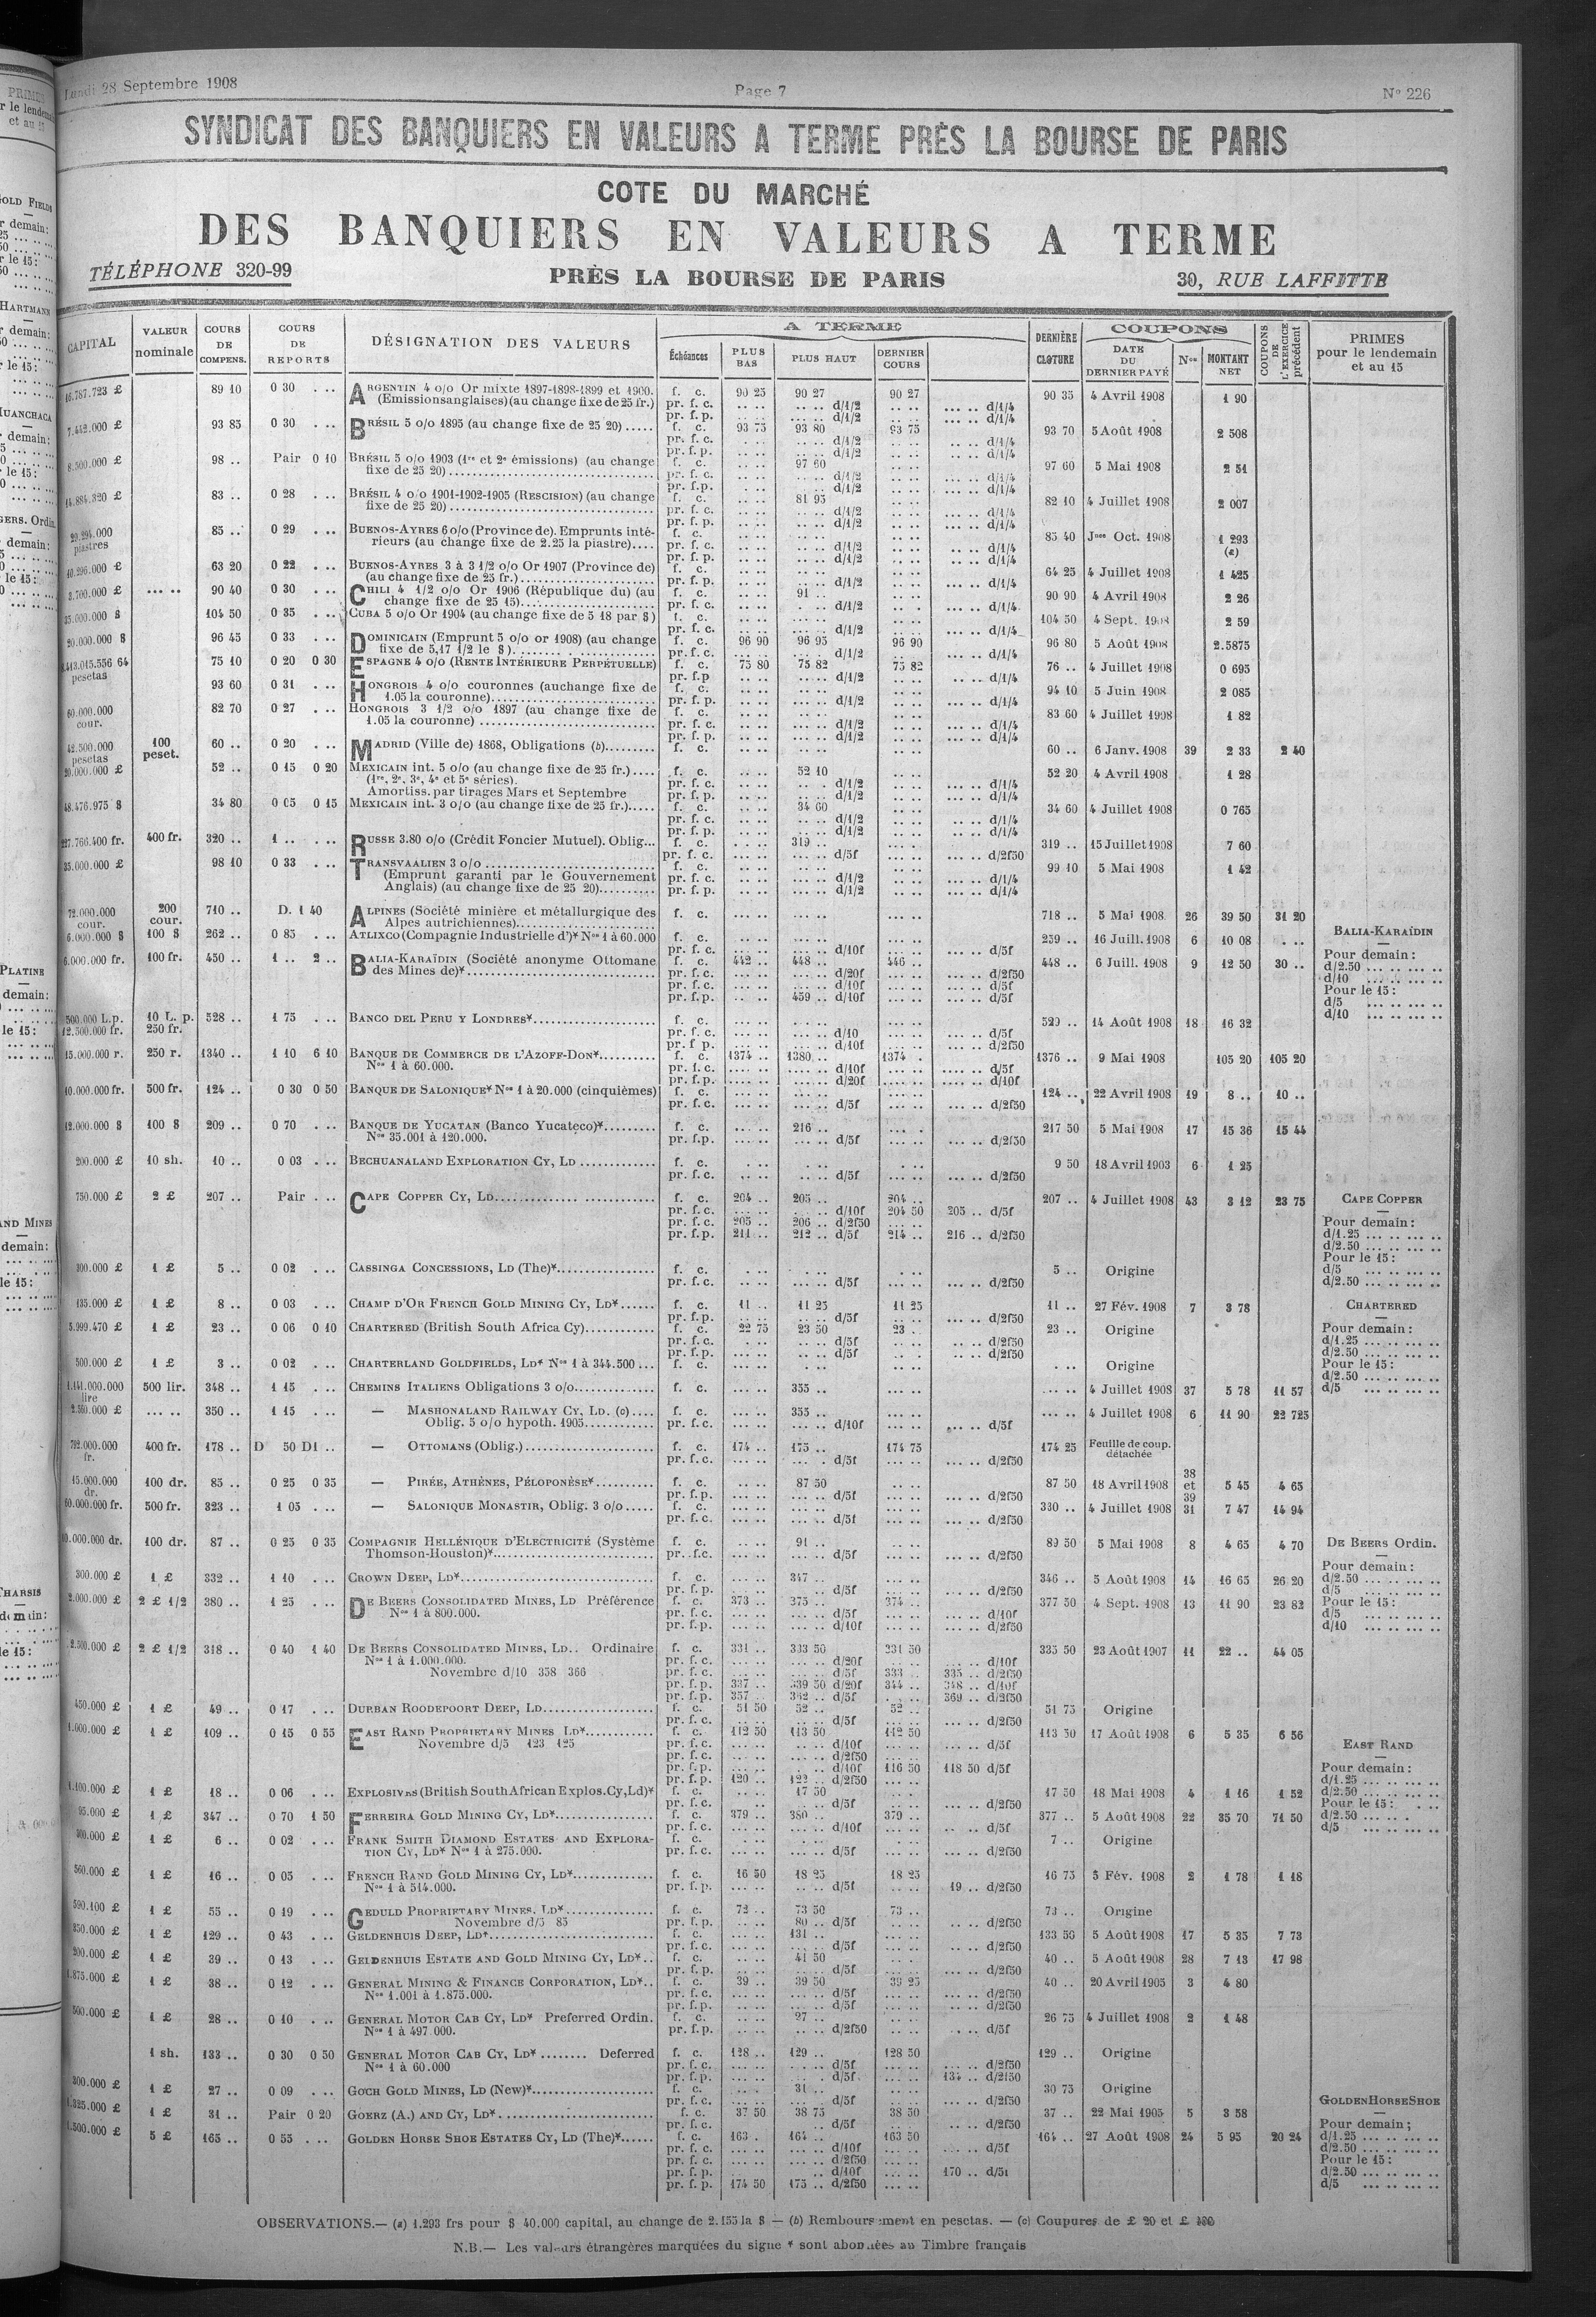 Lundi 28 Septembre 1908 Page 7 No 226
SYNDICAT DES BANQUIERS EN VALEURS A TERME PRÈS LA BOURSE DE PARIS
COTE DU MARCHÉ
DES BANQUIERS EN VALEURS A TERME
TÉLÉPHONE 320-99 PRÈS LA BOURSE DE PARIS 30, RUE LAFFITTE
CAPITAL VALEUR nominale COURS DE COMPENS. COURS DE REPORTS DÉSIGNATION DES VALEURS A TERME Échéances PLUS BAS PLUS HAUT DERNIER COURS DERNIÈRE CLOTURE COUPONS DATE DU DERNIER PAYÉ Nos MONTANT NET COUPONS DE L'EXERCICE précédent PRIMES pour le lendemain et au 15
16.787.723 £ 89 10 0 30 ... ARGENTIN 4 o/o Or mixte 1897-1898-1899 et 1900. f. c. 90 25 90 27 90 27 90 35 4 Avril 1908 1 90
(Emissions anglaises) (au change fixe de 25 fr.) pr. f. c. d/1/2 d/1/4
pr. f. p. d/1/2 d/1/4
7.442.000 £ 93 85 0 30 ... BRÉSIL 5 o/o 1895 (au change fixe de 25 20) f. c. 93 75 93 80 93 75 93 70 5 Août 1908 2 508
8.500.000 £ 98 .. Pair 0 10 BRÉSIL 5 o/o 1903 (1re et 2e émissions) (au change fixe de 25 20) f. c. 97 60 97 60 5 Mai 1908 2 51
14.884.320 £ 83 .. 0 28 ... BRÉSIL 4 o/o 1901-1902-1905 (RESCISION) (au change fixe de 25 20) f. c. 81 95 82 10 4 Juillet 1908 2 007
piastres 85 .. 0 29 ... BUENOS-AYRES 6 o/o (Province de). Emprunts intérieurs (au change fixe de 2.25 la piastre) f. c. 85 40 Jnes Oct. 1908 1 293 (a)
10.296.000 £ 63 20 0 22 ... BUENOS-AYRES 3 à 3 1/2 o/o Or 1907 (Province de) (au change fixe de 25 fr.) f. c. 64 25 4 Juillet 1908 1 425
3.700.000 £ 90 40 0 30 ... CHILI 4 1/2 o/o Or 1906 (République du) (au change fixe de 25 15) f. c. 91 .. 90 90 4 Avril 1908 2 26
35.000.000 $ 104 50 0 35 ... CUBA 5 o/o Or 1904 (au change fixe de 5 18 par $) f. c. 104 50 4 Sept. 1908 2 59
20.000.000 $ 96 45 0 33 ... DOMINICAIN (Emprunt 5 o/o or 1908) (au change fixe de 5,17 1/2 le $) f. c. 96 90 96 95 96 90 96 80 5 Août 1908 2.5875
pesetas 75 10 0 20 0 30 ESPAGNE 4 o/o (RENTE INTÉRIEURE PERPÉTUELLE) f. c. 75 80 75 82 75 82 76 .. 4 Juillet 1908 0 695
93 60 0 31 ... HONGROIS 4 o/o couronnes (au change fixe de 1.05 la couronne) f. c. 94 10 5 Juin 1908 2 085
60.000.000 cour. 82 70 0 27 ... HONGROIS 3 1/2 o/o 1897 (au change fixe de 1.05 la couronne) f. c. 83 60 4 Juillet 1908 1 82
42.500.000 pesetas 100 peset. 60 .. 0 20 ... MADRID (Ville de) 1868, Obligations (b) f. c. 60 .. 6 Janv. 1908 39 2 33 2 40
20.000.000 £ 52 .. 0 15 0 20 MEXICAIN int. 5 o/o (au change fixe de 25 fr.) f. c. 52 10 52 20 4 Avril 1908 1 28
(1re, 2e, 3e, 4e et 5e séries).
Amortiss. par tirages Mars et Septembre
48.476.975 $ 34 80 0 05 0 15 MEXICAIN int. 3 o/o (au change fixe de 25 fr.) f. c. 34 60 34 60 4 Juillet 1908 0 765
227.766.400 fr. 400 fr. 320 .. 1 .. RUSSE 3.80 o/o (Crédit Foncier Mutuel). Oblig... f. c. 319 .. 319 .. 15 Juillet 1908 7 60
35.000.000 £ 98 10 0 33 ... TRANSVAALIEN 3 o/o f. c. 99 10 5 Mai 1908 1 42
(Emprunt garanti par le Gouvernement Anglais) (au change fixe de 25 20)
72.000.000 cour. 200 cour. 710 .. D. 1 40 ALPINES (Société minière et métallurgique des Alpes autrichiennes) f. c. 718 .. 5 Mai 1908 26 39 50 31 20
6.000.000 $ 100 $ 262 .. 0 85 ... ATLIXCO (Compagnie Industrielle d')* Nos 1 à 60.000 f. c. 259 .. 16 Juill. 1908 6 10 08
6.000.000 fr. 100 fr. 450 .. 1 .. 2 .. BALIA-KARAÏDIN (Société anonyme Ottomane des Mines de)* f. c. 442 .. 448 .. 446 .. 448 .. 6 Juill. 1908 9 12 50 30 ..
pr. f. p. 459 .. d/10f d/5f
BALIA-KARAÏDIN
Pour demain :
d/2.50
d/10
Pour le 15 :
d/5
d/10
500.000 L.p. 12.500.000 fr. 10 L. p. 250 fr. 528 .. 1 75 ... BANCO DEL PERU Y LONDRES* f. c. 529 .. 14 Août 1908 18 16 32
15.000.000 r. 250 r. 1340 .. 1 10 6 10 BANQUE DE COMMERCE DE L'AZOFF-DON* Nos 1 à 60.000. f. c. 1374 .. 1380 .. 1374 . 1376 .. 9 Mai 1908 105 20 105 20
10.000.000 fr. 500 fr. 124 .. 0 30 0 50 BANQUE DE SALONIQUE* Nos 1 à 20.000 (cinquièmes) f. c. 124 .. 22 Avril 1908 19 8 .. 10 ..
12.000.000 $ 100 $ 209 .. 0 70 ... BANQUE DE YUCATAN (Banco Yucateco)* Nos 35.001 à 120.000. f. c. 216 .. 217 50 5 Mai 1908 17 15 36 15 44
200.000 £ 10 sh. 10 .. 0 03 ... BECHUANALAND EXPLORATION CY, LD f. c. 9 50 18 Avril 1903 6 1 25
750.000 £ 2 £ 207 .. Pair ... CAPE COPPER CY, LD f. c. 204 .. 205 .. 204 .. 207 .. 4 Juillet 1908 43 3 12 23 75
pr. f. c. d/10f 204 50 205 .. d/5f
pr. f. c. 205 .. 206 .. d/2f50
pr. f. p. 211 .. 212 .. d/5f 214 .. 216 .. d/2f50
CAPE COPPER
Pour demain :
d/1.25
d/2.50
Pour le 15 :
d/5
d/2.50
300.000 £ 1 £ 5 .. 0 02 ... CASSINGA CONCESSIONS, LD (The)* f. c. 5 .. Origine
135.000 £ 1 £ 8 .. 0 03 ... CHAMP D'OR FRENCH GOLD MINING CY, LD* f. c. 11 .. 11 25 11 25 11 .. 27 Fév. 1908 7 3 78
5.999.470 £ 1 £ 23 .. 0 06 0 10 CHARTERED (British South Africa Cy) f. c. 22 75 23 50 23 . 23 .. Origine
CHARTERED
Pour demain :
d/1.25
d/2.50
Pour le 15 :
d/2.50
d/5
500.000 £ 1 £ 3 .. 0 02 ... CHARTERLAND GOLDFIELDS, LD* Nos 1 à 344.500 ... f. c. Origine
1.141.000.000 lire 500 lir. 348 .. 1 15 ... CHEMINS ITALIENS Obligations 3 o/o f. c. 355 .. 4 Juillet 1908 37 5 78 11 57
2.500.000 £ 350 .. 1 15 ... — MASHONALAND RAILWAY CY, LD. (c) Oblig. 5 o/o hypoth. 1905 f. c. 355 .. 4 Juillet 1908 6 11 90 22 725
fr. 400 fr. 178 .. D 50 D1 .. — OTTOMANS (Oblig.) f. c. 174 .. 175 .. 174 75 174 25 Feuille de coup. détachée
15.000.000 dr. 100 dr. 85 .. 0 25 0 35 — PIRÉE, ATHÈNES, PÉLOPONÈSE* f. c. 87 50 87 50 18 Avril 1908 38 et 39 5 45 4 65
60.000.000 fr. 500 fr. 323 .. 1 05 ... — SALONIQUE MONASTIR, Oblig. 3 o/o f. c. 330 .. 4 Juillet 1908 31 7 47 14 94
100 dr. 87 .. 0 25 0 35 COMPAGNIE HELLÉNIQUE D'ELECTRICITÉ (Système Thomson-Houston)* f. c. 91 .. 89 50 5 Mai 1908 8 4 65 4 70
300.000 £ 1 £ 332 .. 1 10 ... CROWN DEEP, LD* f. c. 347 .. 346 .. 5 Août 1908 14 16 65 26 20
2.000.000 £ 2 £ 1/2 380 .. 1 25 ... DE BEERS CONSOLIDATED MINES, LD Préférence Nos 1 à 800.000. f. c. 373 .. 375 .. 374 .. 377 50 4 Sept. 1908 13 11 90 23 82
DE BEERS Ordin.
Pour demain :
d/2.50
d/5
Pour le 15 :
d/5
d/10
2.500.000 £ 2 £ 1/2 318 .. 0 40 1 40 DE BEERS CONSOLIDATED MINES, LD.. Ordinaire f. c. 331 .. 333 50 331 50 335 50 23 Août 1907 11 22 .. 44 05
Nos 1 à 1.000.000.
Novembre d/10 358 366
pr. f. c. d/5f 333 .. 335 .. d/2f50
pr. f. p. 337 .. 339 50 d/20f 344 .. 348 .. d/10f
pr. f. p. 357 .. 362 .. d/5f 369 .. d/2f50
450.000 £ 1 £ 49 .. 0 17 ... DURBAN ROODEPOORT DEEP, LD f. c. 51 50 52 .. 52 .. 51 75 Origine
1.000.000 £ 1 £ 109 .. 0 15 0 55 EAST RAND PROPRIETARY MINES LD* f. c. 112 50 113 50 112 50 113 50 17 Août 1908 6 5 35 6 56
Novembre d/5 123 125
pr. f. p. d/10f 116 50 118 50 d/5f
pr. f. p. 120 .. 122 .. d/2f50
EAST RAND
Pour demain :
d/1.25
d/2.50
Pour le 15 :
d/2.50
d/5
1.100.000 £ 1 £ 18 .. 0 06 ... EXPLOSIVES (British South African Explos. Cy, Ld)* f. c. 17 50 17 50 18 Mai 1908 4 1 16 1 52
95.000 £ 1 £ 347 .. 0 70 1 50 FERREIRA GOLD MINING CY, LD* f. c. 379 .. 380 .. 379 .. 377 .. 5 Août 1908 22 35 70 71 50
1 £ 6 .. 0 02 ... FRANK SMITH DIAMOND ESTATES AND EXPLORATION CY, LD* Nos 1 à 275.000. f. c. 7 .. Origine
560.000 £ 1 £ 16 .. 0 05 ... FRENCH RAND GOLD MINING CY, LD* Nos 1 à 514.000. f. c. 16 50 18 25 18 25 16 75 5 Fév. 1908 2 1 78 1 18
pr. f. p. d/5f 19 .. d/2f50
590.100 £ 1 £ 55 .. 0 19 ... GEDULD PROPRIETARY MINES, LD* f. c. 72 .. 73 50 73 .. 73 .. Origine
Novembre d/5 85 pr. f. p. 80 .. d/5f d/2f50
350.000 £ 1 £ 129 .. 0 43 ... GELDENHUIS DEEP, LD* f. c. 131 .. 133 50 5 Août 1908 17 5 35 7 73
200.000 £ 1 £ 39 .. 0 13 ... GELDENHUIS ESTATE AND GOLD MINING CY, LD* f. c. 41 50 40 .. 5 Août 1908 28 7 13 17 98
1.875.000 £ 1 £ 38 .. 0 12 ... GENERAL MINING & FINANCE CORPORATION, LD* Nos 1.001 à 1.875.000. f. c. 39 .. 39 50 39 25 40 .. 20 Avril 1905 3 4 80
500.000 £ 1 £ 28 .. 0 10 ... GENERAL MOTOR CAB CY, LD* Preferred Ordin. Nos 1 à 497.000. f. c. 27 .. 26 75 4 Juillet 1908 2 1 48
1 sh. 133 .. 0 30 0 50 GENERAL MOTOR CAB CY, LD* Deferred Nos 1 à 60.000 f. c. 128 .. 129 .. 128 50 129 .. Origine
pr. f. p. d/5f 134 .. d/2f50
300.000 £ 1 £ 27 .. 0 09 ... GOCH GOLD MINES, LD (New)* f. c. 31 .. 30 75 Origine
1.325.000 £ 1 £ 31 .. Pair 0 20 GOERZ (A.) AND CY, LD* f. c. 37 50 38 75 38 50 37 .. 22 Mai 1905 5 3 58
1.500.000 £ 5 £ 165 .. 0 55 ... GOLDEN HORSE SHOE ESTATES CY, LD (The)* f. c. 163 . 164 .. 163 50 164 .. 27 Août 1908 24 5 95 20 24
pr. f. p. d/10f 170 .. d/5f
pr. f. p. 174 50 175 .. d/2f50
GOLDEN HORSE SHOE
Pour demain ;
d/1.25
d/2.50
Pour le 15 :
d/2.50
d/5
OBSERVATIONS.— (a) 1.293 frs pour $ 40.000 capital, au change de 2.155 la $ — (b) Remboursement en pesetas. — (c) Coupures de £ 20 et £ 100
N.B.— Les valeurs étrangères marquées du signe * sont abonnées au Timbre français